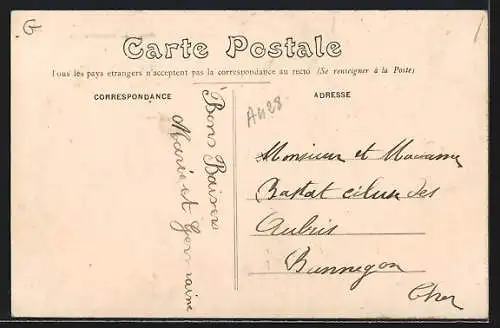 G
Carte Postale
Tous les pays etrangers n'acceptent pas la correspondance au recto (Se renseigner à la Poste)
CORRESPONDANCE
Bons Baisers
Marie et Germaine
A428
ADRESSE
Monsieur et Madame
Bastat des
Aubris
Bannegon
Cher